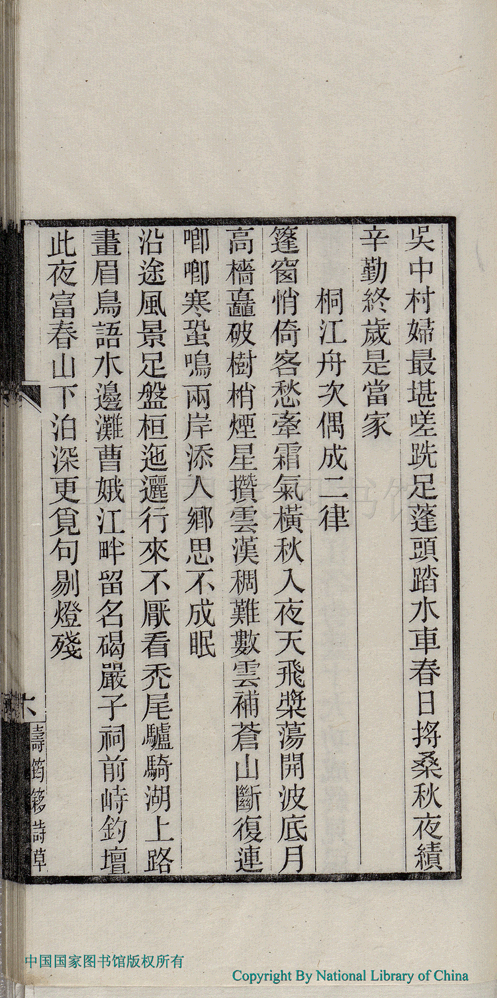 吳中村婦最堪嗟跣足蓬頭踏水車春日捋桑秋夜績
辛勤終歲是當家
桐江舟次偶成二律
篷窗悄倚客愁牽霜氣橫秋入夜天飛槳蕩開波底月
高檣矗破樹梢煙星攢雲漢稠難數雲補蒼山斷復連
唧唧寒蛩鳴兩岸添人鄉思不成眠
沿途風景足盤桓迤邐行來不厭看禿尾驢騎湖上路
畫眉鳥語水邊灘曹娥江畔留名碣嚴子祠前峙釣壇
此夜富春山下泊深更覓句剔燈殘
六
詩草
中国国家图书馆版权所有
Copyright By National Library of China